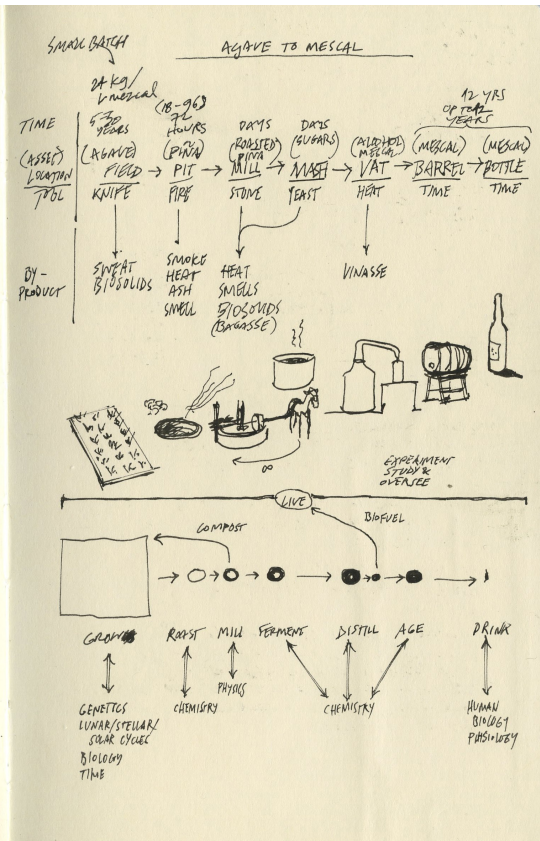 SMALL BATCH
AGAVE TO MESCAL
24 KG/
L MEZCAL
TIME
5-30
YEARS
(18-96)
72
HOURS
DAYS
DAYS
12 YRS
UP TO 12
YEARS
(ASSET)
LOCATION
TOOL
(AGAVE)
FIELD
KNIFE
(PIÑA)
PIT
FIRE
(ROASTED)
PIÑA
MILL
STONE
(SUGARS)
MASH
YEAST
(ALCOHOL)
MESCAL
VAT
HEAT
(MESCAL)
BARREL
TIME
(MESCAL)
BOTTLE
TIME
BY-
PRODUCT
SWEAT
BIOSOLIDS
SMOKE
HEAT
ASH
SMELL
HEAT
SMELLS
BIOSOLIDS
(BAGASSE)
VINASSE
∞
EXPERIMENT
STUDY &
OVERSEE
LIVE
COMPOST
BIOFUEL
GROW
ROAST
MILL
FERMENT
DISTILL
AGE
DRINK
GENETICS
LUNAR/STELLAR/
SOLAR CYCLES
BIOLOGY
TIME
CHEMISTRY
PHYSICS
CHEMISTRY
HUMAN
BIOLOGY
PHYSIOLOGY